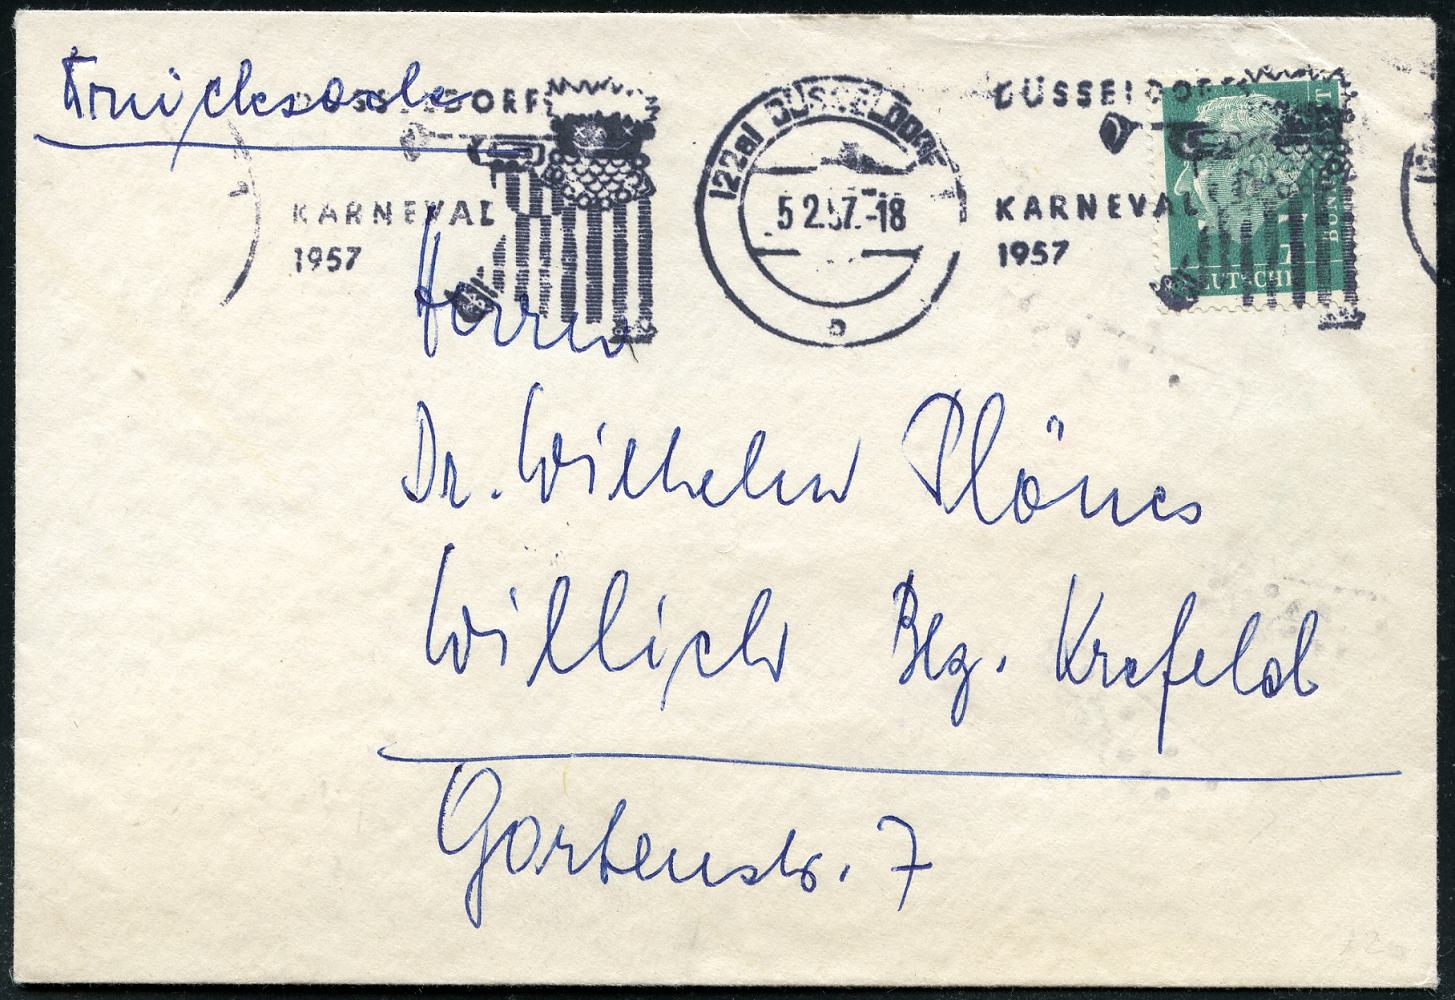 Drucksache
DÜSSELDORF
KARNEVAL
1957
(22a) DÜSSELDORF
5.2.57.-18
b
DÜSSELDORF
KARNEVAL
1957
DEUTSCHE
BUNDESPOST
7
Herrn
Dr. Wilhelm Plönes
Willich Bez. Krefeld
Gartenstr. 7